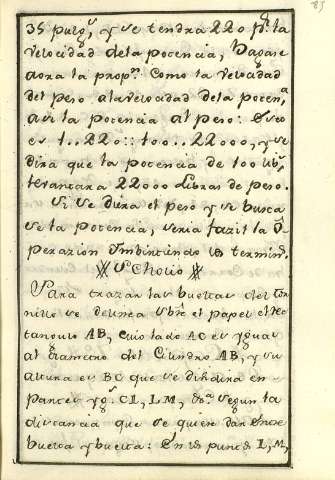 35 pulg.s, y se tendra 220 p.a la
velocidad dela potencia, Hagase
aora la prop.n Como la velocidad
del peso ala velocidad dela poten.a
asi la potencia al peso: Esto
es 1..220::100..22000, y se
dira que la potencia de 100 lib.s
levantara 22000 Libras de peso.
Si se diera el peso y se busca
se la potencia, seria facil la O
perazion Imbirtiendo los termin.s
Scholio
Para trazar las bueltas del tor
nillo se delinea sobre el papel el Rec
tangulo AB, cuio lado AC es ygual
al diametro del Cilindro AB, y su
altura es BC que se dibidira en
partes yg.s CL, LM, &.a segun la
distancia que se quiere dar entre
buelta y buelta: En los punt.s L, M,